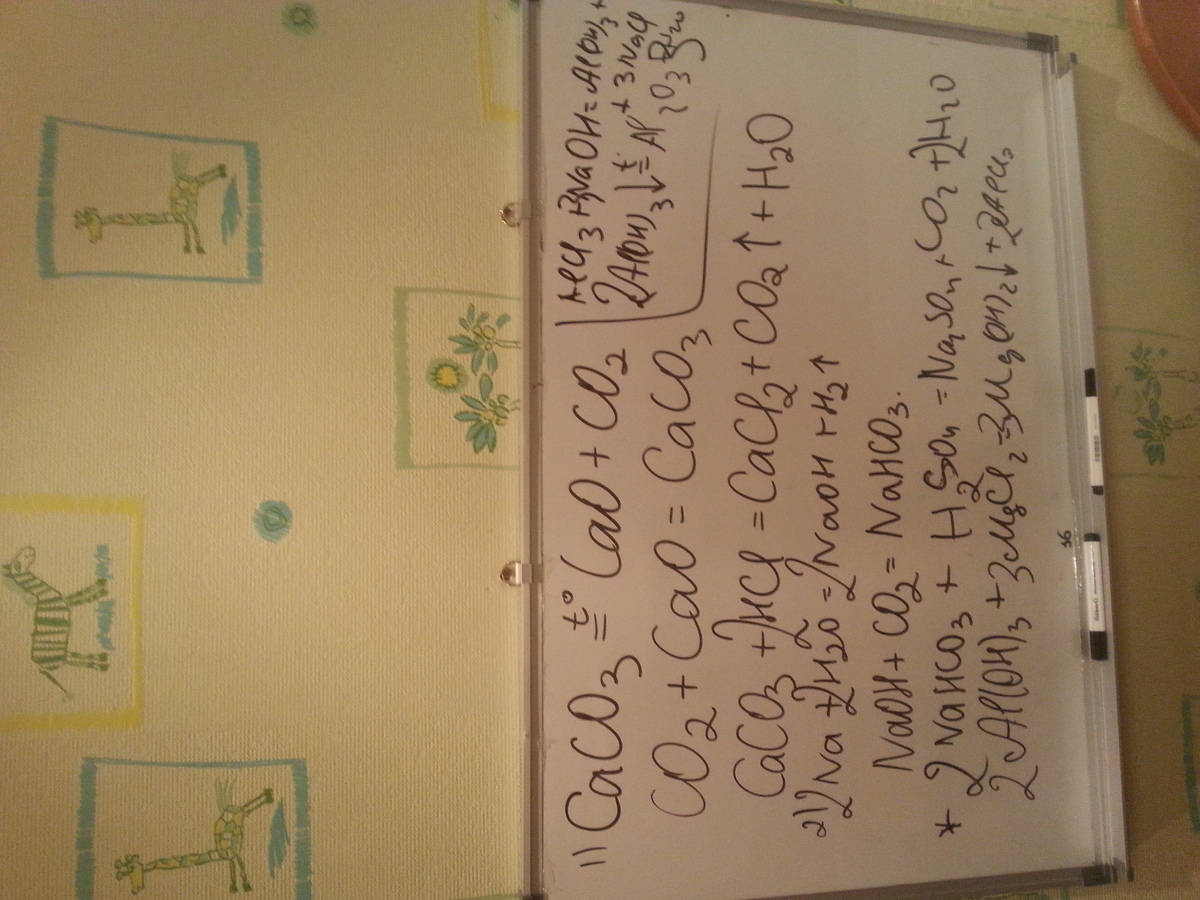 1) CaCO3 =t° CaO + CO2
CO2 + CaO = CaCO3
CaCO3 + 2HCl = CaCl2 + CO2↑ + H2O
2) 2Na + 2H2O = 2NaOH + H2↑
NaOH + CO2 = NaHCO3.
* 2NaHCO3 + H2SO4 = Na2SO4 + CO2 + 2H2O
2Al(OH)3 + 3MgCl2 = 3Mg(OH)2↓ + 2AlCl3
AlCl3 + 3NaOH = Al(OH)3 +
+ 3NaCl
2Al(OH)3↓ =t° Al2O3 + 3H2O
56